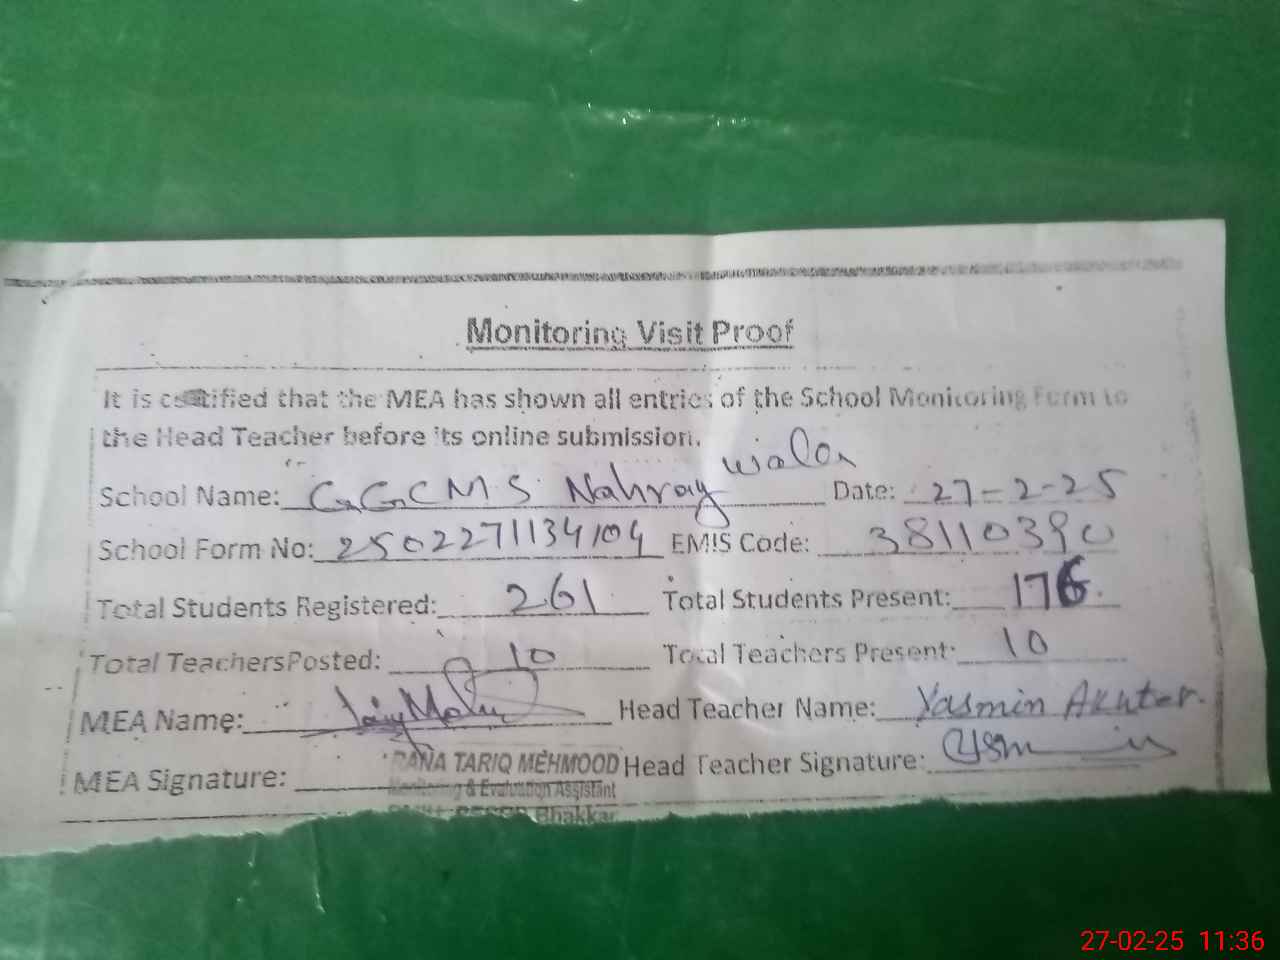 Monitoring Visit Proof
It is certified that the MEA has shown all entries of the School Monitoring Form to
the Head Teacher before its online submission.
School Name: GGCMS Nahray wala Date: 27-2-25
School Form No: 2502271134104 EMIS Code: 38110390
Total Students Registered: 261 Total Students Present: 176
Total Teachers Posted: 10 Total Teachers Present: 10
MEA Name: Head Teacher Name: Yasmin Akhter.
MEA Signature: RANA TARIQ MEHMOOD Head Teacher Signature:
Monitoring & Evaluation Assistant
Bhakkar
27-02-25 11:36